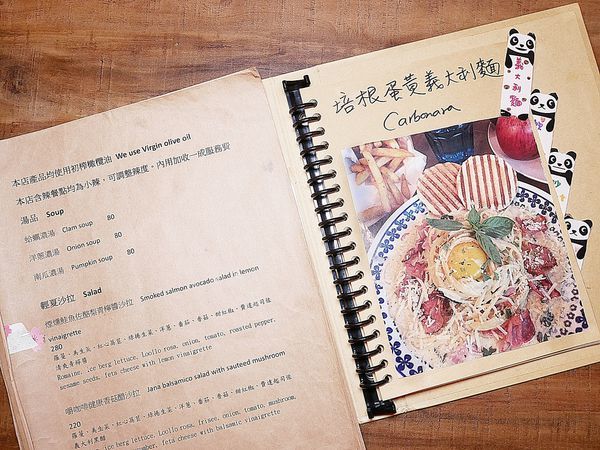 本店產品均使用初榨橄欖油 We use Virgin olive oil
本店含辣餐點均為小辣,可調整辣度。內用加收一成服務費
湯品 Soup
蛤蠣濃湯 Clam soup 80
洋蔥濃湯 Onion soup 80
南瓜濃湯 Pumpkin soup 80
輕夏沙拉 Salad
煙燻鮭魚佐酪梨青檸醬沙拉 Smoked salmon avocado salad in lemon
vinaigrette
280
蘿蔓、美生菜、紅心萵苣、綠捲生菜、洋蔥、番茄、香菇、甜紅椒、費達起司佐
清爽青檸醬
Romaine, ice berg lettuce, Loollo rosa, onion, tomato, roasted pepper,
sesame seeds, feta cheese with lemon vinaigrette
嚼嚼健康香菇醋沙拉 Jana balsamico salad with sauteed mushroom
220
蘿蔓、美生菜、紅心萵苣、綠捲生菜、洋蔥、番茄、香菇、甜紅椒、費達起司佐
義大利黑醋
ice berg lettuce, Loollo rosa, frisee, onion, tomato, mushroom,
feta cheese with balsamic vinaigrette
培根蛋黃義大利麵
Carbonara
義大利麵